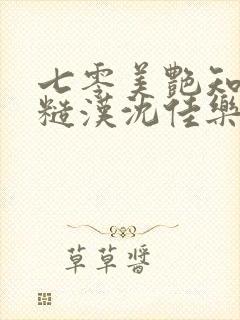 七零美艷知
糙漢沈佳樂
草草醬